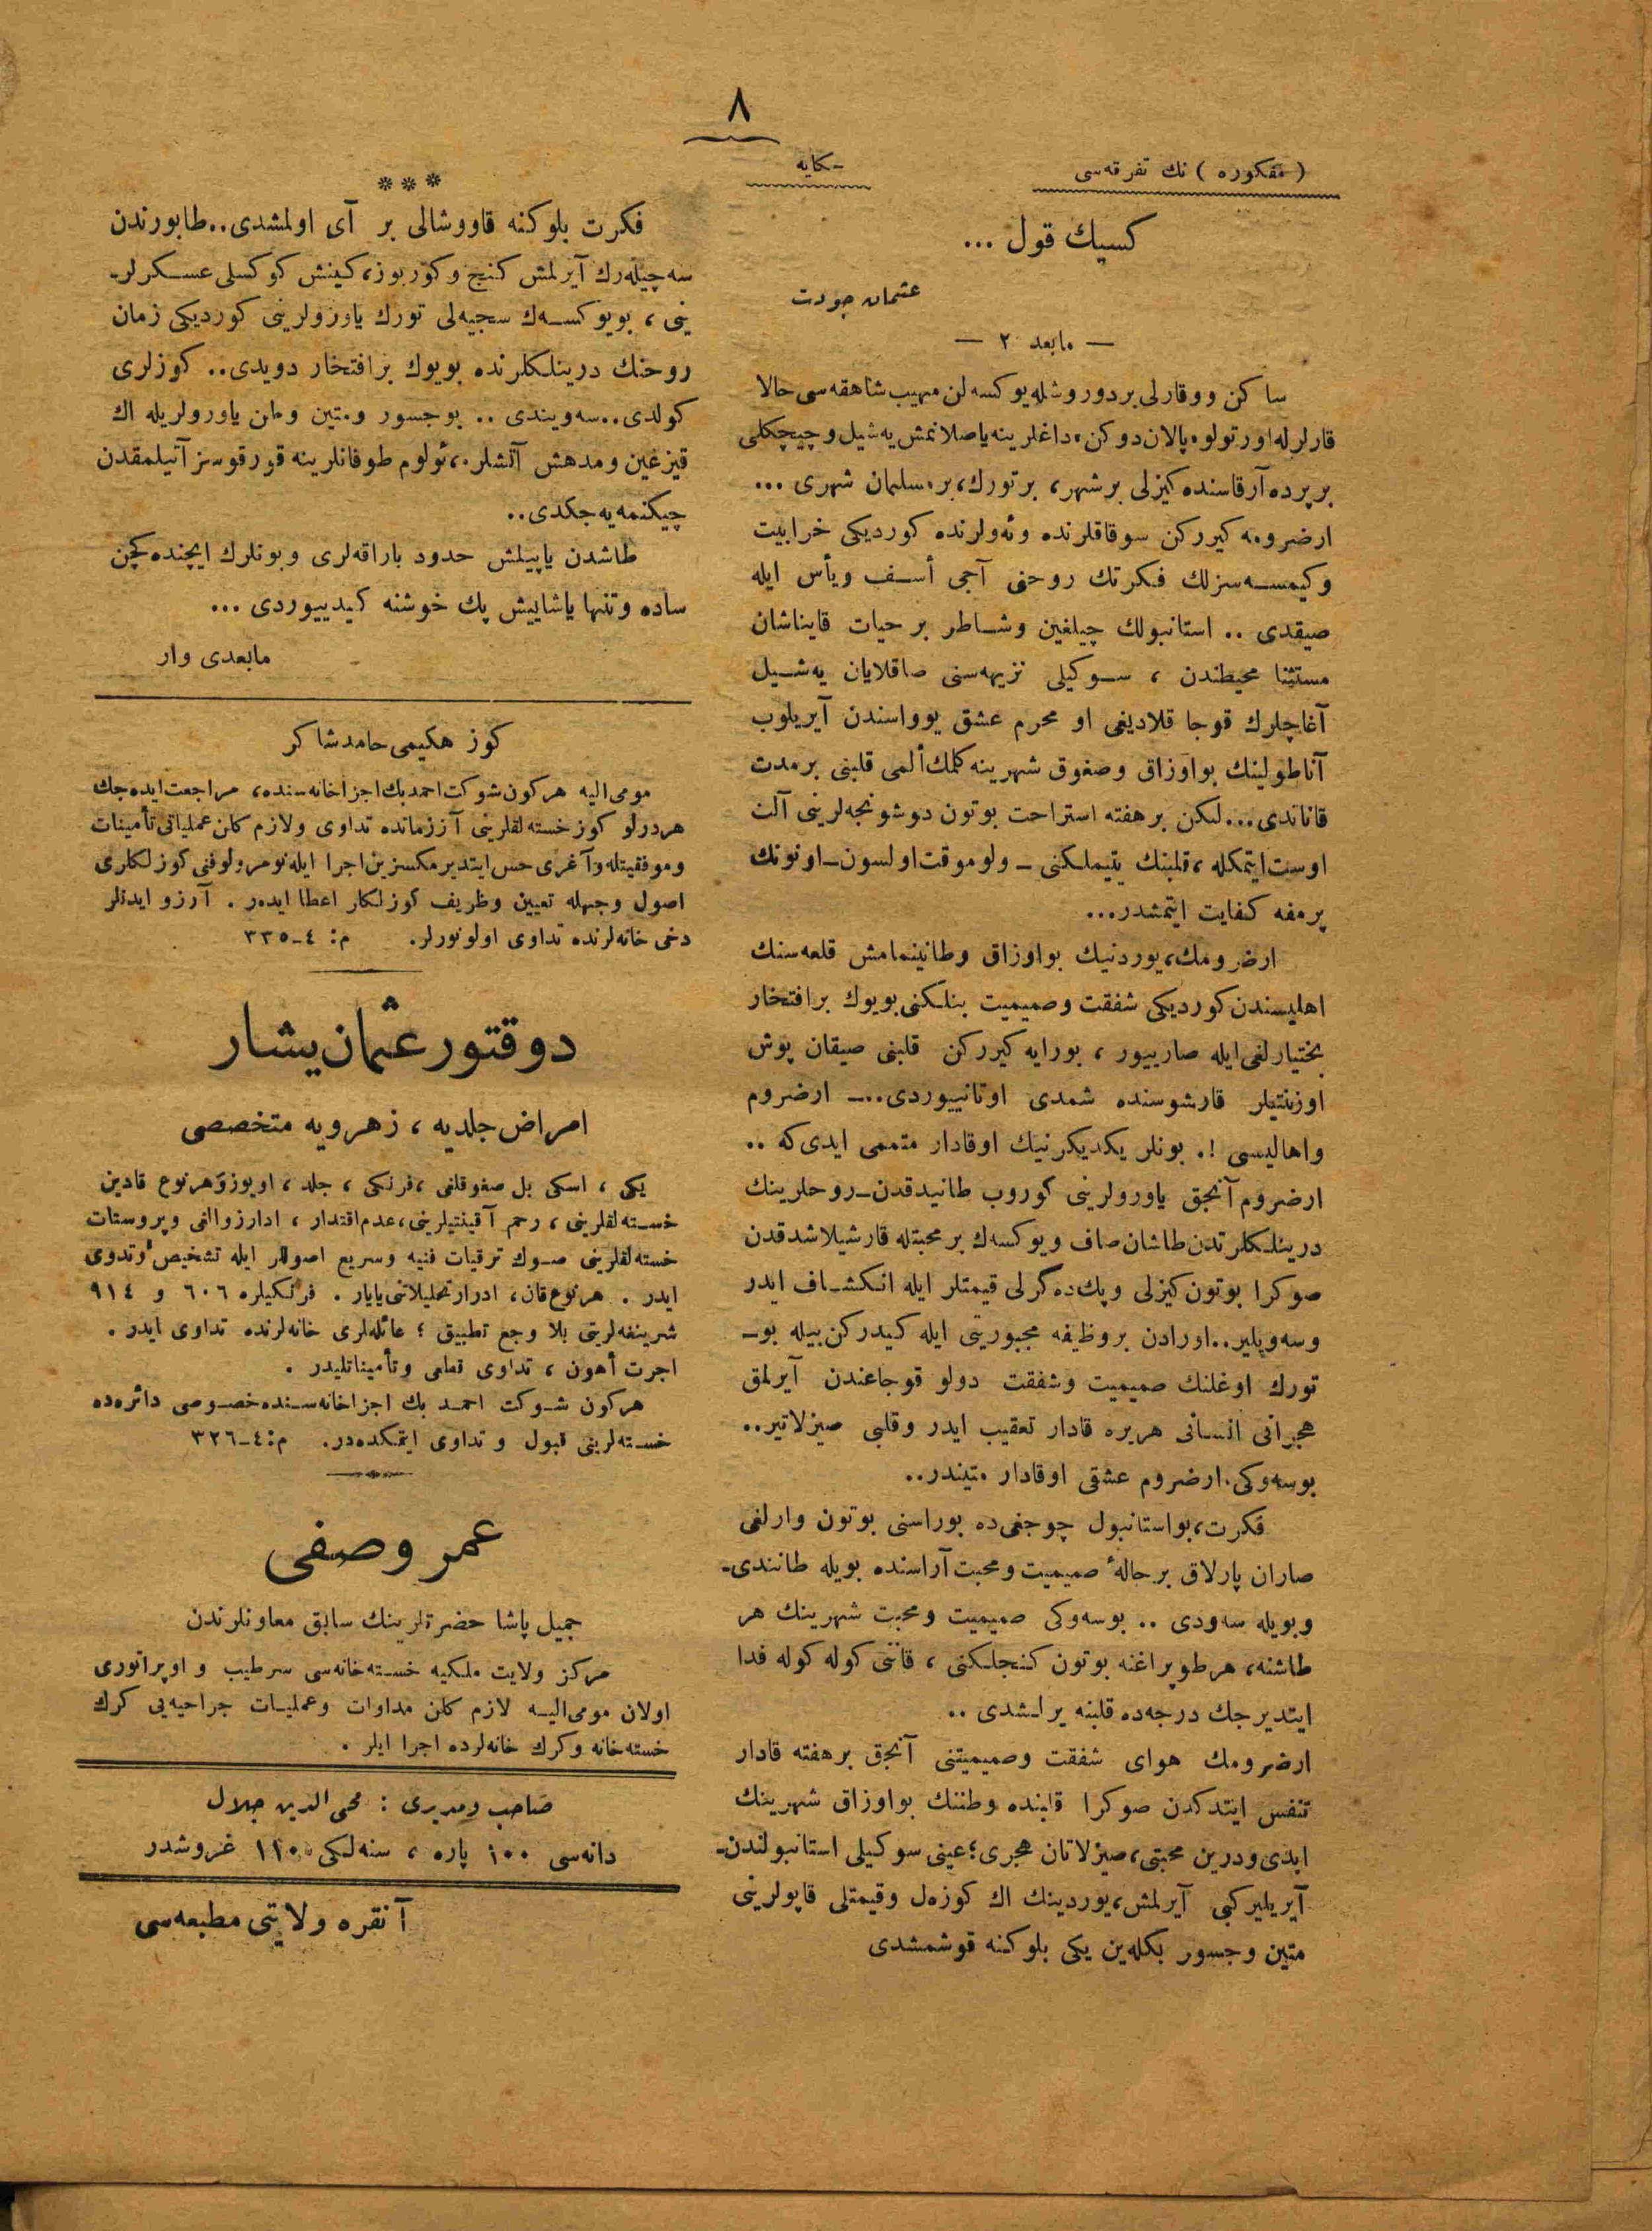 ٨
(مفكوره) نك تفرقه‌سى
حكايه
كسيك قول ...
عثمان جودت
— مابعد ٢ —
ساكن ووقارلى بر دوروشله يوكسه‌لن مهيب شاهقه‌سى حالا
قارلرله اورتولو، پالان دوكن، داغلرينه ياصلانمش يه‌شيل و چيچكلى
بر پرده آرقاسنده كيزلى بر شهر، بر تورك، بر مسلمان شهرى ...
ارضرومه كيرركن سوقاقلرنده وئه‌ولرنده كورديكى خرابيت
وكيمسه‌سزلك فكرتك روحنى آجى أسف ويأس ايله
صيقدى .. استانبولك چيلغين وشاطر بر حيات قايناشان
مستثنا محيطندن ، سوكيلى نزيهه‌سنى صاقلايان يه‌شيل
آغاچلرك قوجاقلاديغى او محرم عشق يوواسندن آيريلوب
آناطولينك بو اوزاق وصغوق شهرينه كلمك ألمى قلبنى بر مدت
قاناتدى... لكن بر هفته استراحت بوتون دوشونجه‌لرينى آلت
اوست ايتمكله ، قلبنك يتيملكنى ـ ولو موقت اولسون ـ اونوتـ
ـدرمغه كفايت ايتمشدر...
ارضرومك، يوردينك بو اوزاق وطانينمامش قلعه‌سنك
اهليسندن كورديكى شفقت وصميميت بنلكنى بويوك بر افتخار
بختيارلغى ايله صارييور ، بورايه كيرركن قلبنى صيقان پوش
اوزينتيلر قارشوسنده شمدى اوتانييوردى.. ـ ارضروم
واهاليسى !. بونلر يكديكرينك اوقادار متممى ايدى كه ..
ارضروم آنجق ياورولرينى كوروب طانيدقدن ـ روحلرينك
درينلكلرندن طاشان صاف و يوكسك بر محبتله قارشيلاشدقدن
صوكرا بوتون كيزلى و پك ده‌كرلى قيمتلر ايله انكشاف ايدر
وسه‌ويلير.. اورادن بر وظيفه مجبوريتى ايله كيدركن بيله بوـ
تورك اوغلنك صميميت وشفقت دولو قوجاغندن آيرلمق
هجرانى انسانى هر يره قادار تعقيب ايدر وقلبى صيزلاتير..
بو سه‌وكى، ارضروم عشقى اوقادار متيندر..
فكرت، بو استانبول چوجغى ده بوراسنى بوتون وارلغى
صاران پارلاق بر هالهٔ صميميت ومحبت آراسنده بويله طانندى ـ
وبويله سه‌ودى .. بو سه‌وكى صميميت ومحبت شهرينك هر
طاشنه، هر طوپراغنه بوتون كنجلكنى ، قاننى كوله كوله فدا
ايتديرجك درجه‌ده قلبنه يرلشدى ..
ارضرومك هواى شفقت وصميميتنى آنجق بر هفته قادار
تنفس ايتدكدن صوكرا قلبنده وطننك بو اوزاق شهرينك
ابدى ودرين محبتى، صيزلاتان هجرى؛ عينى سوكيلى استانبولندن ـ
آيريلير كبى آيرلمش، يوردينك اك كوزه‌ل وقيمتلى قاپولرينى
متين وجسور بكله‌ين يكى بلوكنه قوشمشدى
***
فكرت بلوكنه قاووشالى بر آى اولمشدى.. طابورندن
سه‌چيله‌رك آيرلمش كنج وكوربوز، كينش كوكسلى عسكرلرـ
ينى ، بو يوكسه‌ك سجيه‌لى تورك ياورولرينى كورديكى زمان
روحنك درينلكلرنده بويوك بر افتخار دويدى.. كوزلرى
كولدى.. سه‌ويندى .. بو جسور ومتين وطن ياورولريله اك
قيزغين ومدهش آتشلره، ئولوم طوفانلرينه قورقوسز آتيلمقدن
چيكنمه‌يه‌جكدى..
طاشدن ياپيلمش حدود باراقه‌لرى وبونلرك ايچنده كچن
ساده وتنها ياشاييش پك خوشنه كيدييوردى ...
مابعدى وار
كوز هكيمى حامد شاكر
مومى‌اليه هركون شوكت احمد بك اجزاخانه‌سنده، مراجعت ايده‌جك
هردرلو كوز خسته‌لقلرينى آز زمانده تداوى ولازم كلن عملياتى تأمينات
وموفقيتله وآغرى حس ايتديرمكسزين اجرا ايله نومرولو فنى كوزلكلرى
اصول وجهله تعيين وظريف كوزلكلر اعطا ايدر . آرزو ايدنلر
دخى خانه‌لرنده تداوى اولونورلر. م: ٤ـ٣٣٥
دوقتور عثمان يشار
امراض جلديه ، زهرويه متخصصى
يكى ، اسكى بل صغوقلغى ، فرنكى ، جلد ، اويوز وهرنوع قادين
خسته‌لقلرينى ، رحم آقينتيلرينى، عدم اقتدار ، ادارزوالغى وپروستات
خسته‌لقلرينى صوك ترقيات فنيه وسريع اصوللر ايله تشخيص وتدوى
ايدر . هرنوع قان، ادرار تحليلاتنى ياپار . فرنكيلره ٦٠٦ و ٩١٤
شرينغه‌لرينى بلا وجع تطبيق ؛ عائله‌لرى خانه‌لرنده تداوى ايدر .
اجرت أهون ، تداوى قطعى وتأميناتليدر .
هركون شوكت احمد بك اجزاخانه‌سنده خصوصى دائره‌ده
خسته‌لرينى قبول و تداوى ايتمكده‌در. م: ٤ـ٣٢٦
عمر وصفى
جميل پاشا حضرتلرينك سابق معاونلرندن
مركز ولايت ملكيه خسته‌خانه‌سى سرطبيب و اوپراتورى
اولان مومى‌اليه لازم كلن مداوات وعمليات جراحيه‌يى كرك
خسته‌خانه وكرك خانه‌لرده اجرا ايلر .
صاحب ومديرى : محى الدين جلال
دانه‌سى ١٠٠ پاره ، سنه‌لكى ١١٠ غروشدر
آنقره ولايتى مطبعه‌سى